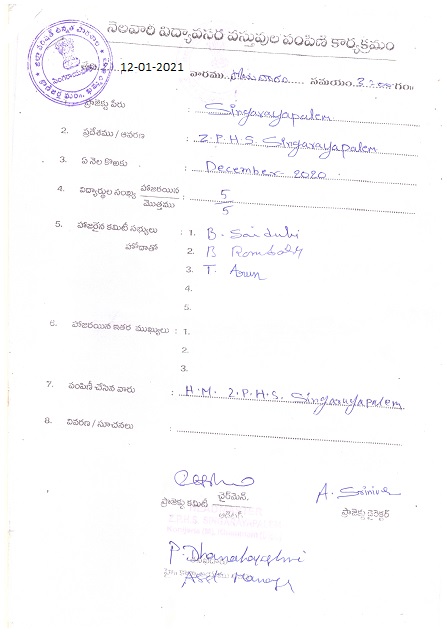 నెలవారి విద్యావసర వస్తువుల పంపిణి కార్యక్రమం
12-01-2021 వారము సమయం
ప్రాజెక్టు పేరు : Singarayapalem
2. ప్రదేశము / ఆవరణ : Z.P.H.S. Singarayapalem
3. ఏ నెల కొఱకు : December 2020
4. విద్యార్థుల సంఖ్య హాజరయిన / మొత్తము : 5 / 5
5. హాజరైన కమిటీ సభ్యులు : 1. B. Saidubi
హోదాతో 2. B
3. T. Arun
4.
5.
6. హాజరయిన ఇతర ముఖ్యులు : 1.
2.
3.
7. పంపిణీ చేసిన వారు : H.M. Z.P.H.S. Singarayapalem
8. వివరణ / సూచనలు :
ప్రాజెక్టు కమిటీ చైర్‌మెన్.
A.
ప్రాజెక్టు డైరెక్టర్
P.
Asst Manager